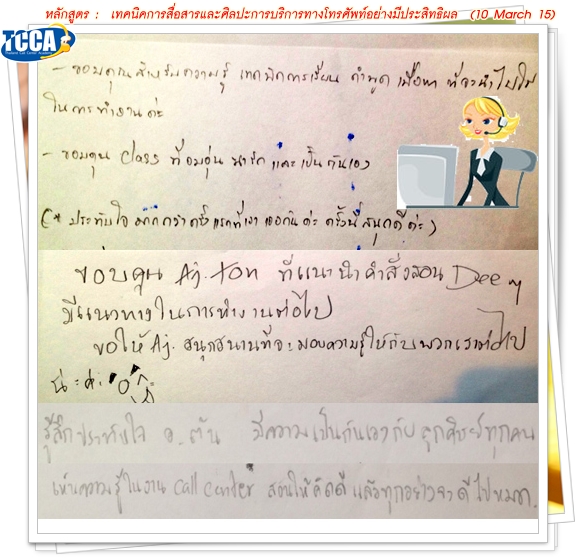 หลักสูตร : เทคนิคการสื่อสารและศิลปะการบริการทางโทรศัพท์อย่างมีประสิทธิผล (10 March 15)
TCCA
- ขอบคุณสำหรับความรู้ เทคนิคการเรียน คำพูด เนื้อหา ที่จะนำไปใช้
ในการทำงานค่ะ
- ขอบคุณ Class ที่อบอุ่น น่ารัก และเป็นกันเอง
(* ประทับใจ มากกว่าครั้งแรกที่เราเจอกันค่ะ ครั้งนี้สนุกดีค่ะ)
ขอบคุณ Aj. Ton ที่แนะนำคำสั่งสอน Dee ๆ
มีแนวทางในการทำงานต่อไป
ขอให้ Aj. สนุกสนานที่จะมอบความรู้ให้กับพวกเราต่อไป
น่ะค่ะ
รู้สึกประทับใจ อ. ต้น มีความเป็นกันเองกับลูกศิษย์ทุกคน
เห็นความรู้ในงาน call center สอนให้คิดดี แล้วทุกอย่างจะดีไปหมด.